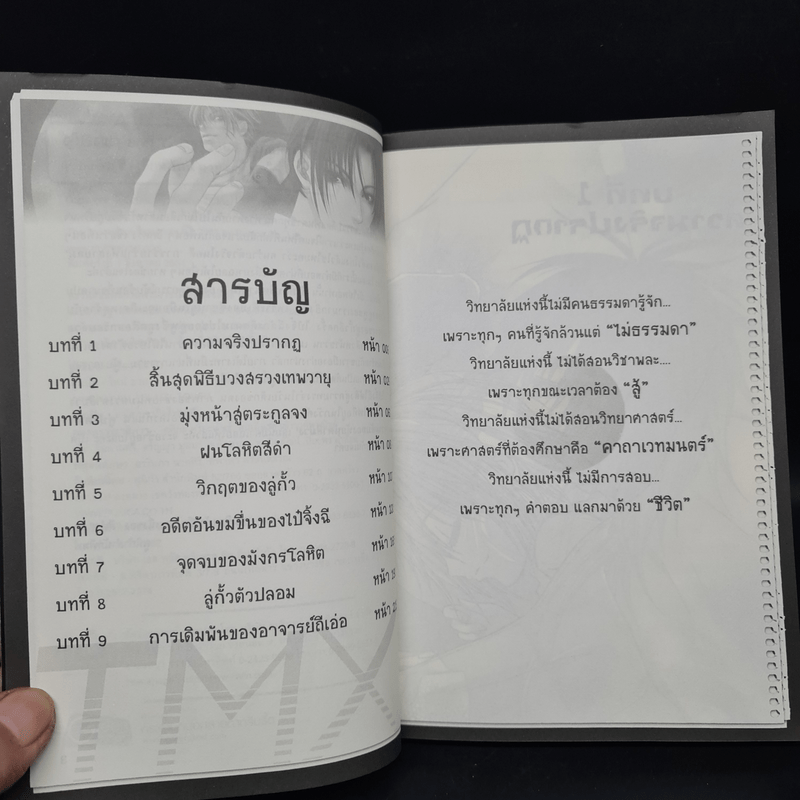 สารบัญ
บทที่ 1 ความจริงปรากฏ หน้า
บทที่ 2 สิ้นสุดพิธีบวงสรวงเทพวายุ หน้า
บทที่ 3 มุ่งหน้าสู่ตระกูลจง หน้า
บทที่ 4 ฝนโลหิตสีดำ หน้า
บทที่ 5 วิกฤตของลู่กั้ว หน้า
บทที่ 6 อดีตอันขมขื่นของไป๋จิ้งฉี หน้า
บทที่ 7 จุดจบของมังกรโลหิต หน้า
บทที่ 8 ลู่กั้วตัวปลอม หน้า
บทที่ 9 การเดิมพันของอาจารย์ถีเอ่อ หน้า
TMX
วิทยาลัยแห่งนี้ไม่มีคนธรรมดารู้จัก...
เพราะทุกๆ คนที่รู้จักล้วนแต่ “ไม่ธรรมดา”
วิทยาลัยแห่งนี้ ไม่ได้สอนวิชาพละ....
เพราะทุกขณะเวลาต้อง “สู้”
วิทยาลัยแห่งนี้ไม่ได้สอนวิทยาศาสตร์...
เพราะศาสตร์ที่ต้องศึกษาคือ “คาถาเวทมนตร์”
วิทยาลัยแห่งนี้ ไม่มีการสอบ...
เพราะทุกๆ คำตอบ แลกมาด้วย “ชีวิต”